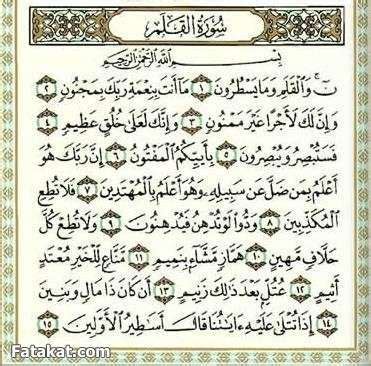 سُورَةُ القَلَمِ
بِسْمِ اللَّهِ الرَّحْمَٰنِ الرَّحِيمِ
نٓ ۚ وَالْقَلَمِ وَمَا يَسْطُرُونَ ١ مَا أَنتَ بِنِعْمَةِ رَبِّكَ بِمَجْنُونٍ ٢
وَإِنَّ لَكَ لَأَجْرًا غَيْرَ مَمْنُونٍ ٣ وَإِنَّكَ لَعَلَىٰ خُلُقٍ عَظِيمٍ ٤
فَسَتُبْصِرُ وَيُبْصِرُونَ ٥ بِأَييِّكُمُ الْمَفْتُونُ ٦ إِنَّ رَبَّكَ هُوَ
أَعْلَمُ بِمَن ضَلَّ عَن سَبِيلِهِ وَهُوَ أَعْلَمُ بِالْمُهْتَدِينَ ٧ فَلَا تُطِعِ
الْمُكَذِّبِينَ ٨ وَدُّوا لَوْ تُدْهِنُ فَيُدْهِنُونَ ٩ وَلَا تُطِعْ كُلَّ
حَلَّافٍ مَّهِينٍ ١٠ هَمَّازٍ مَّشَّاءٍ بِنَمِيمٍ ١١ مَّنَّاعٍ لِّلْخَيْرِ مُعْتَدٍ
أَثِيمٍ ١٢ عُتُلٍّ بَعْدَ ذَٰلِكَ زَنِيمٍ ١٣ أَن كَانَ ذَا مَالٍ وَبَنِينَ
١٤ إِذَا تُتْلَىٰ عَلَيْهِ ءَايَٰتُنَا قَالَ أَسَٰطِيرُ الْأَوَّلِينَ ١٥
Fatakat.com